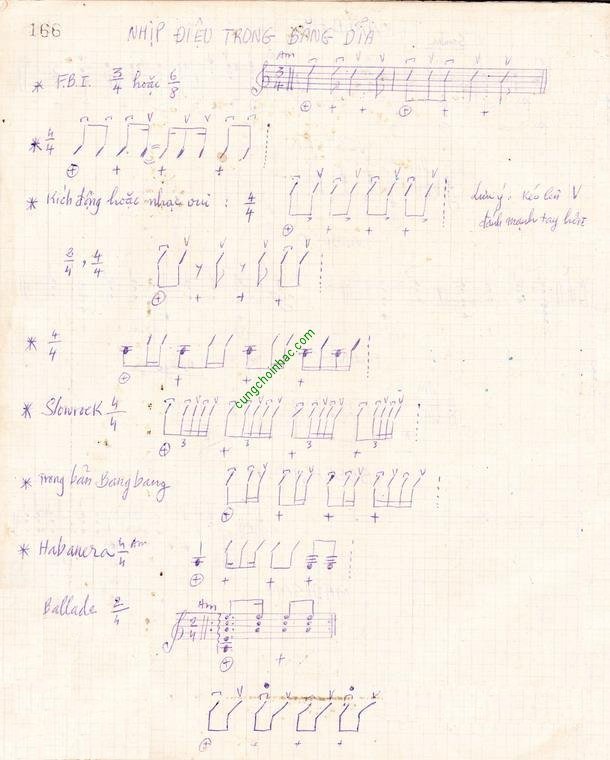 166
NHỊP ĐIỆU TRONG BĂNG DĨA
Am
* F.B.I. 3/4 hoặc 6/8
3/4
* 4/4
* Kích động hoặc nhạc vui : 4/4
Lưu ý: Kéo lên V
đánh mạnh tay hơn
3/4, 4/4
* 4/4
cungchoinhac.com
* Slowrock 4/4
3 3 3 3
* Trong bản Bang bang
* Habanera 4/4 Am
Ballade 2/4
Am
2/4